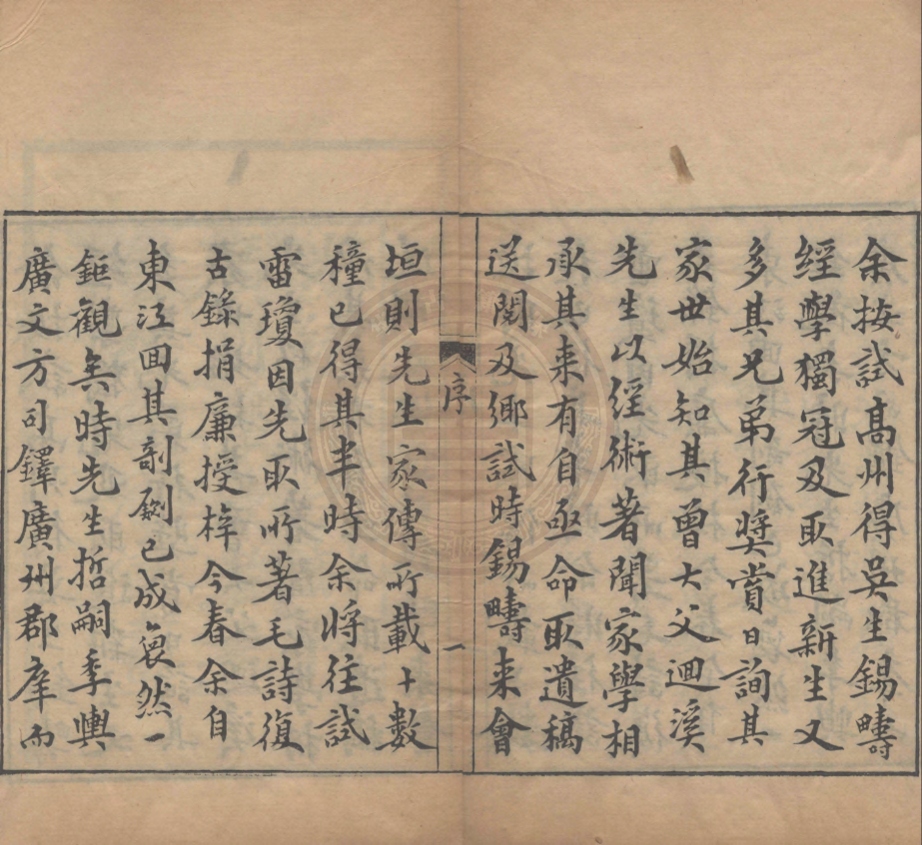 余按試髙州得吴生錫疇
經學獨冠及取進新生又
多其兄弟行奨賞日詢其
家世始知其曾大父迴溪
先生以經術著聞家學相
承其来有自亟命取遺稿
送閱及鄉試時錫疇来會
序
一
垣則先生家傳所載十數
種已得其半時余將往試
雷瓊因先取所著毛詩復
古錄捐廉授梓今春余自
東江回其剞劂已成裒然一
鉅觀矣時先生哲嗣季輿
廣文方司鐸廣州郡庠而